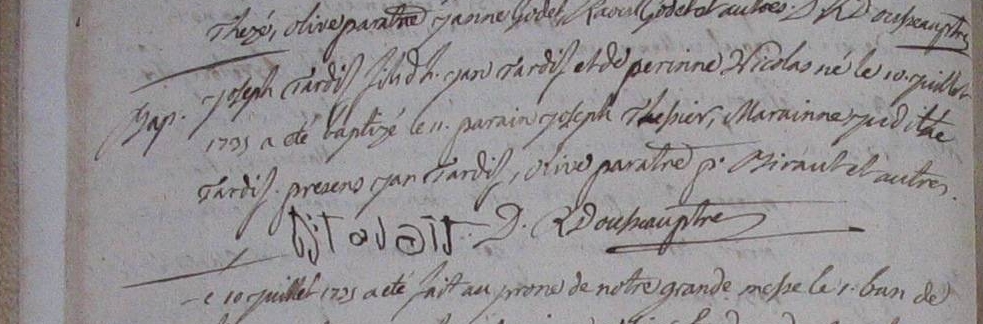 Thezé, olive paratre janne Godet, Raoul Godet et autres. D. R Dousseau ptre
Bap. joseph Tardif fils d'h. jan Tardif et de perinne Nicolas né le 10. juillet
1735 a eté baptizé le 11. parain joseph Thessier, Marainne judithe
Tardif. presens jan Tardif, olive paratre p. Biraut et autres.
D. R Dousseau ptre
Le 10 juillet 1735 a eté fait au prone de notre grande messe le 1. ban de